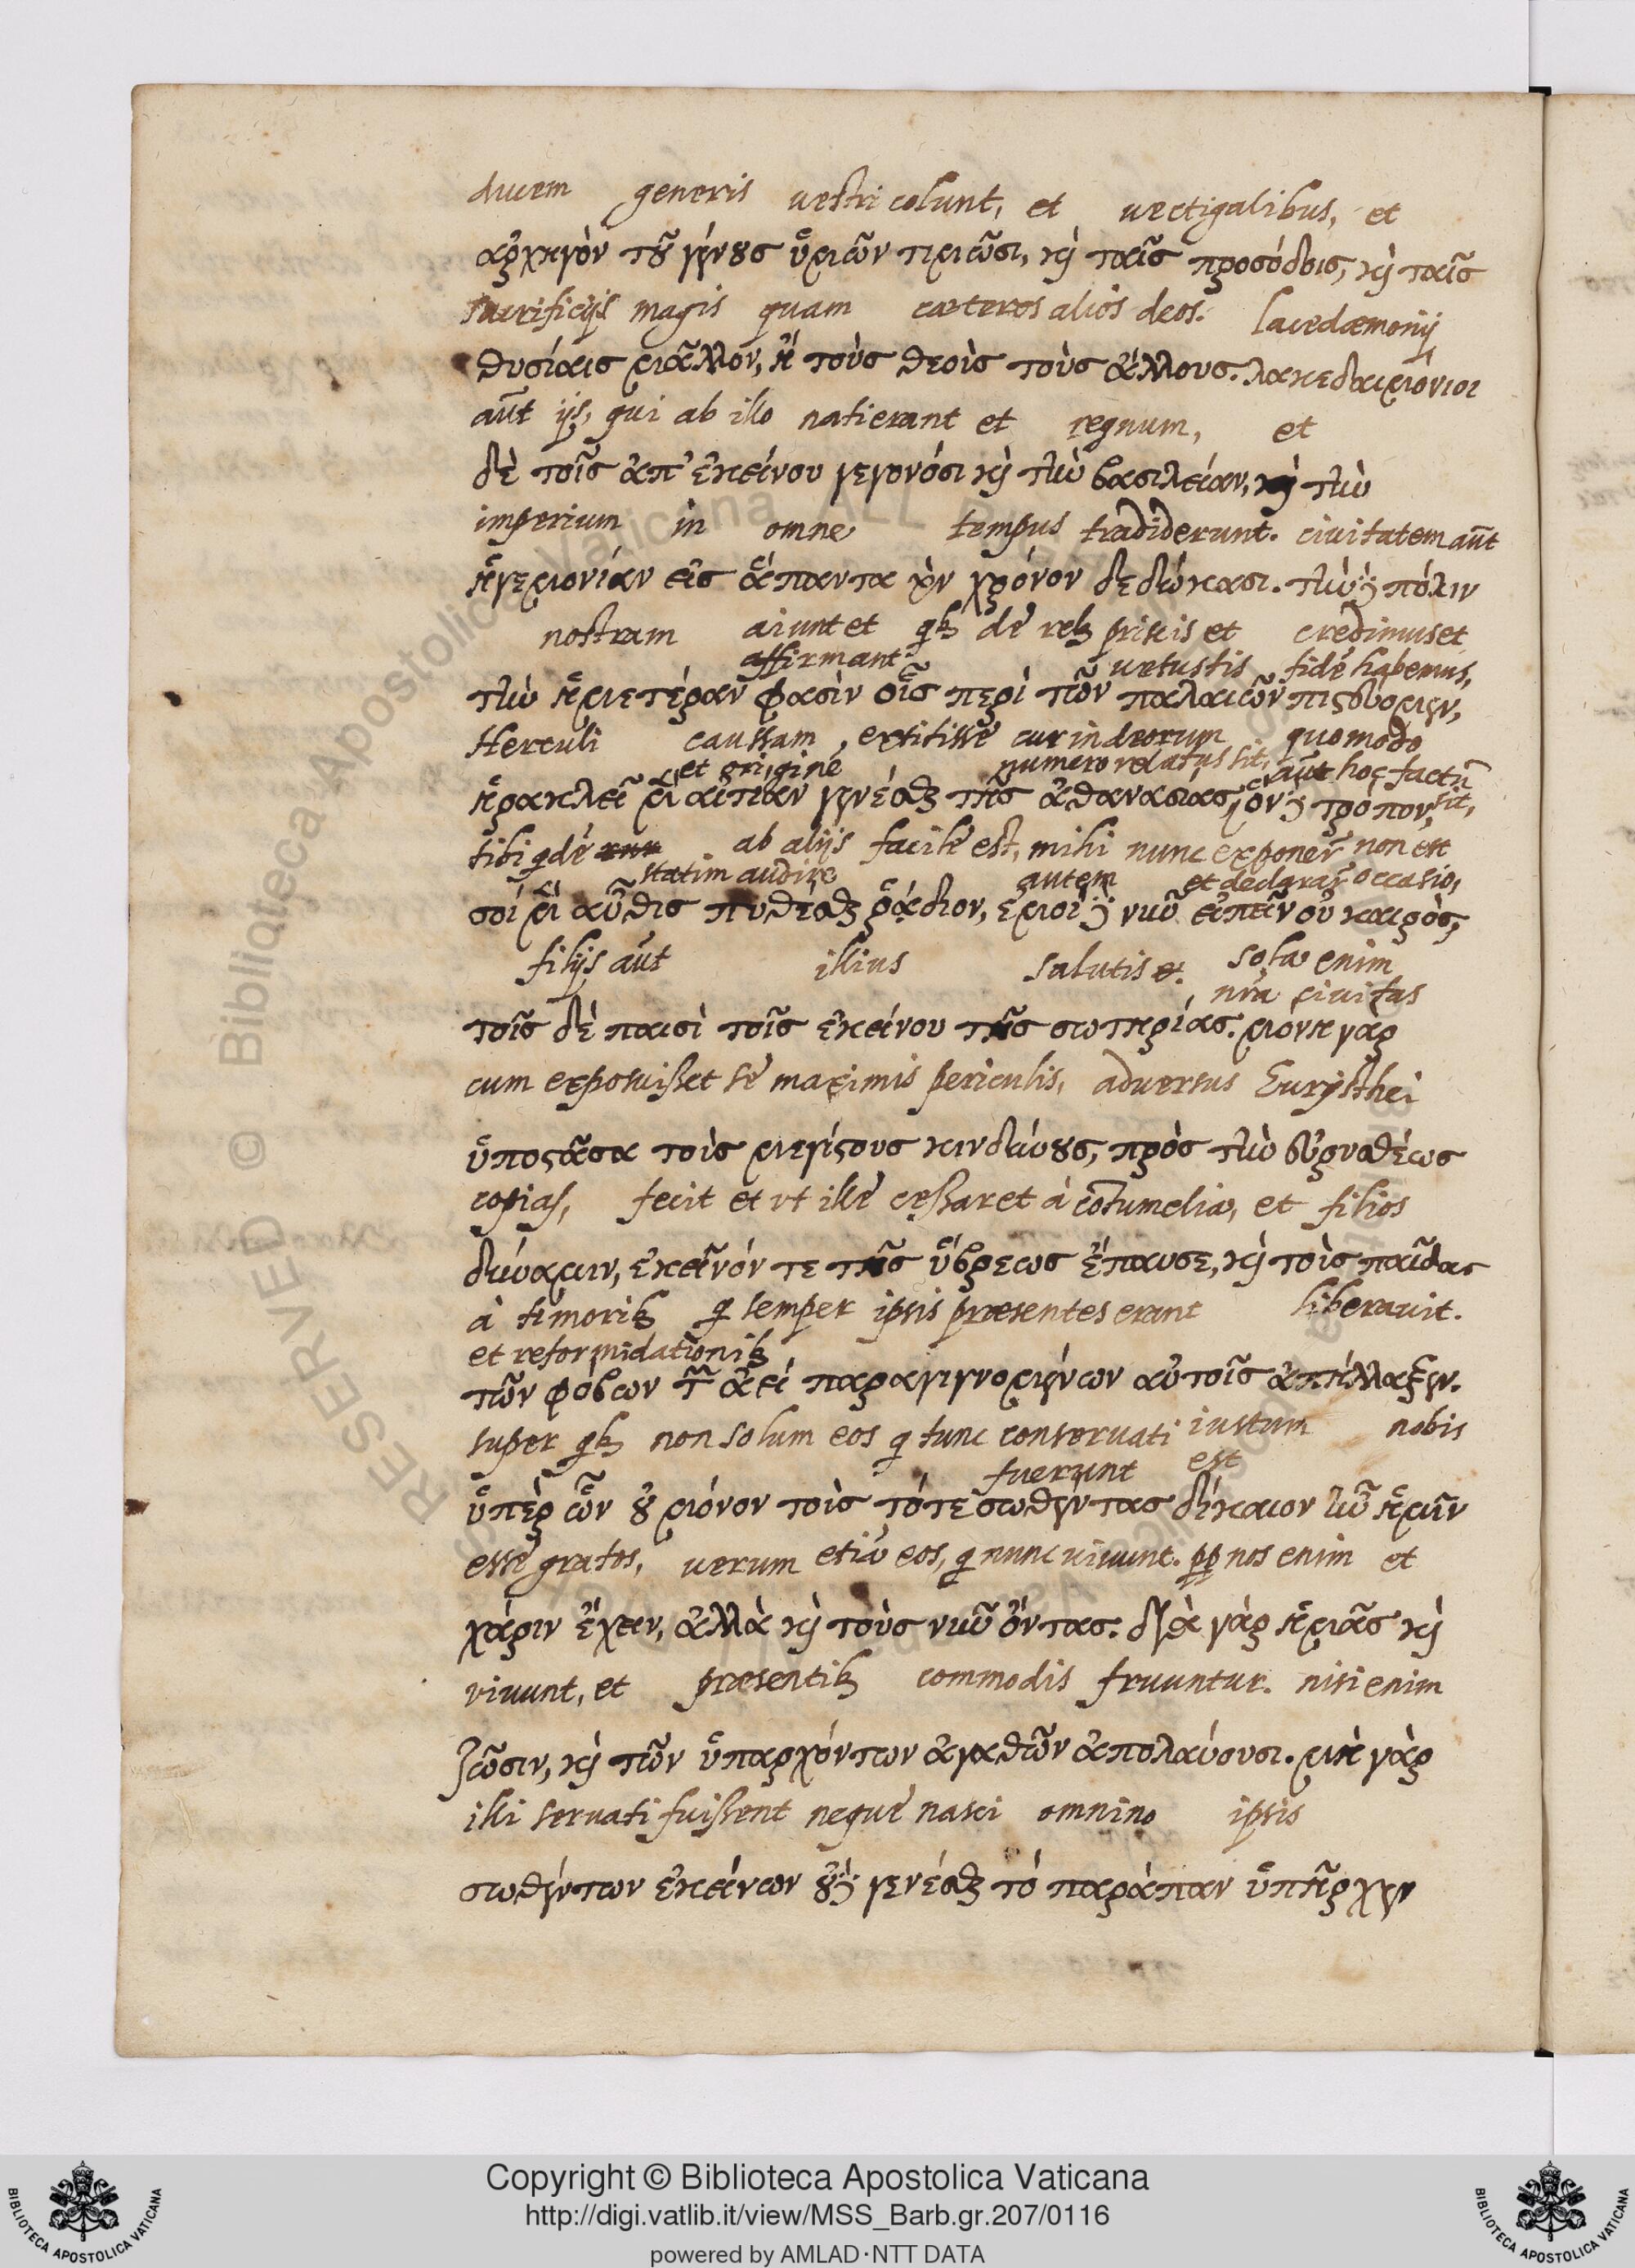 ducem generis vestri colunt, et vectigalibus, et
ἀρχηγὸν τοῦ γένους ὑμῶν τιμῶσι, καὶ ταῖς προσόδοις, καὶ ταῖς
sacrificijs magis quam cæteros alios deos. lacedæmonij
θυσίαις μᾶλλον, ἢ τοὺς θεοὺς τοὺς ἄλλους. λακεδαιμόνιοι
aut̃ ijs, qui ab illo nati erant et regnum, et
δὲ τοῖς ἀπ' ἐκείνου γεγονόσι καὶ τὴν βασιλείαν, καὶ τὴν
imperium in omne tempus tradiderunt. civitatem aut̃
ἡγεμονίαν εἰς ἅπαντα τὸν χρόνον δεδώκασι. τὴν δὲ πόλιν
nostram aiunt et qb de reb priscis et credimus et
affirmant vetustis fidē habemus,
τὴν ἡμετέραν φασὶν οἷς περὶ τῶν παλαιῶν πιστεύομεν,
Herculi caussam, extitisse cur in deorum quomodo
et originē numero relatus sit, aut̃ hoc factū sit,
ἡρακλεῖ μὲν αἰτίαν γενέσθαι τῆς ἀθανασίας, ὃν δὲ τρόπον,
tibi qdē ab alijs facile est, mihi nunc exponer̃ non est
statim audire autem et declarar̃ occasio,
σοὶ μὲν αὖθις πυθέσθαι ῥᾴδιον, ἐμοὶ δὲ νῦν εἰπεῖν οὐ καιρός,
filijs aut̃ illius salutis. sola enim
nr̃a civitas
τοῖς δὲ παισὶ τοῖς ἐκείνου τῆς σωτηρίας. μόνη γὰρ
cum exposuisset se maximis periculis, adversus Eurysthei
ὑποστᾶσα τοὺς μεγίστους κινδύνους, πρὸς τὴν εὐρυσθέως
copias, fecit et vt ille cessaret à cōtumelia, et filios
δύναμιν, ἐκεῖνόν τε τῆς ὕβρεως ἔπαυσε, καὶ τοὺς παῖδας
à timorib q semper ipsis præsentes erant liberavit.
et reformidationib
τῶν φόβων τῶν ἀεὶ παραγιγνομένων αὐτοῖς ἀπήλλαξεν.
super qb non solum eos q tunc conservati iustum nobis
fuerunt est
ὑπὲρ ὧν οὐ μόνον τοὺς τότε σωθέντας δίκαιον ἦν ἡμῖν
esse gratos, verum etiā eos, q nunc vivunt. pp nos enim et
χάριν ἔχειν, ἀλλὰ καὶ τοὺς νῦν ὄντας. διὰ γὰρ ἡμᾶς καὶ
vivunt, et præsentib commodis fruuntur. nisi enim
ζῶσιν, καὶ τῶν ὑπαρχόντων ἀγαθῶν ἀπολαύουσι. μὴ γὰρ
illi servati fuissent neque nasci omnino ipsis
σωθέντων ἐκείνων οὐδὲ γενέσθαι τὸ παράπαν ὑπῆρχεν
Copyright © Biblioteca Apostolica Vaticana
http://digi.vatlib.it/view/MSS_Barb.gr.207/0116
powered by AMLAD·NTT DATA